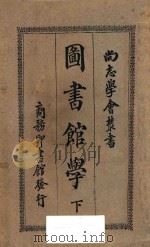 尚志學會叢書
圖書館學
下
商務印書館發行
mtoou.info